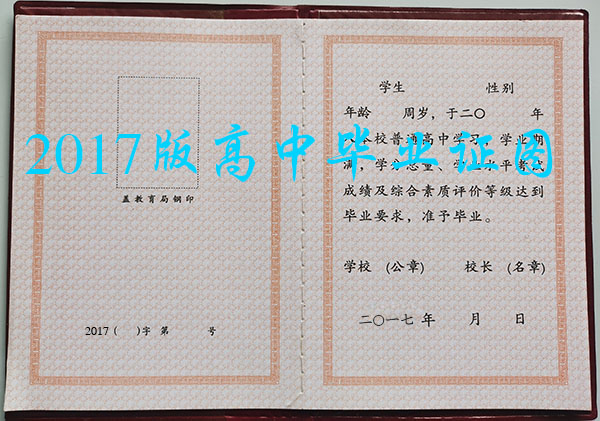 2017版高中毕业证图
盖教育局钢印
2017 ( )字 第 号
学生 性别
年龄 周岁,于二〇 年
本校普通高中学习 学业期
满,学分总量、学业水平考试
成绩及综合素质评价等级达到
毕业要求,准予毕业。
学校 (公章) 校长 (名章)
二〇一七 年 月 日